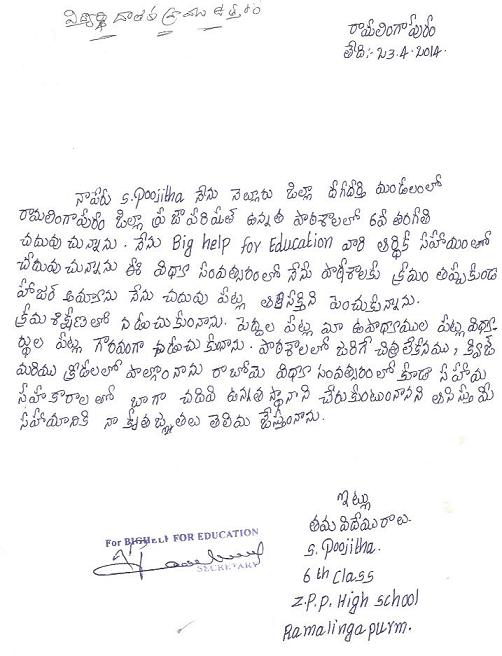 విద్యార్థి దాతకు వ్రాయు ఉత్తరం
రామలింగాపురం
తేది:- 23.4.2014.
నాపేరు S.Poojitha నేను నెల్లూరు జిల్లా దగదర్తి మండలంలో
రామలింగాపురం జిల్లా ప్రజాపరిషత్ ఉన్నత పాఠశాలలో 6వ తరగతి
చదువు చున్నాను. నేను Big help for Education వారి ఆర్థిక సహాయంతో
చదువు చున్నాను ఈ విధ్యా సంవత్సరంలో నేను పాఠశాలకు క్రమం తప్పకుండ
హాజర్ అయ్యాను నేను చదువు పట్ల ఆశక్తిని పెంచుకున్నాను.
క్రమశిక్షణలో నడుచుకుంనాను. పెద్దల పట్ల మా ఉపాధ్యాయుల పట్ల విధ్యా
ర్థుల పట్ల గౌరవంగా నడుచు కుంనాను. పాఠశాలలో జరిగే చిత్రలేకనము, క్విజ్
మరియు క్రీడలలో పాల్గొంనాను రాబోయె విధ్యా సంవత్సరంలో కూడా సహాయ
సహకారాల తో బాగా చదివి ఉన్నత స్థానాని చేరుకుంటుంనానని ఆసిస్తు మీ
సహాయానికి నా కృతజ్ఞతలు తెలియ జేస్తుంనాను.
ఇట్లు
తమ విదేయురాలు.
S. Poojitha.
6th Class
Z.P.P. High school
Ramalingapurm.
For BIGHELP FOR EDUCATION
SECRETARY